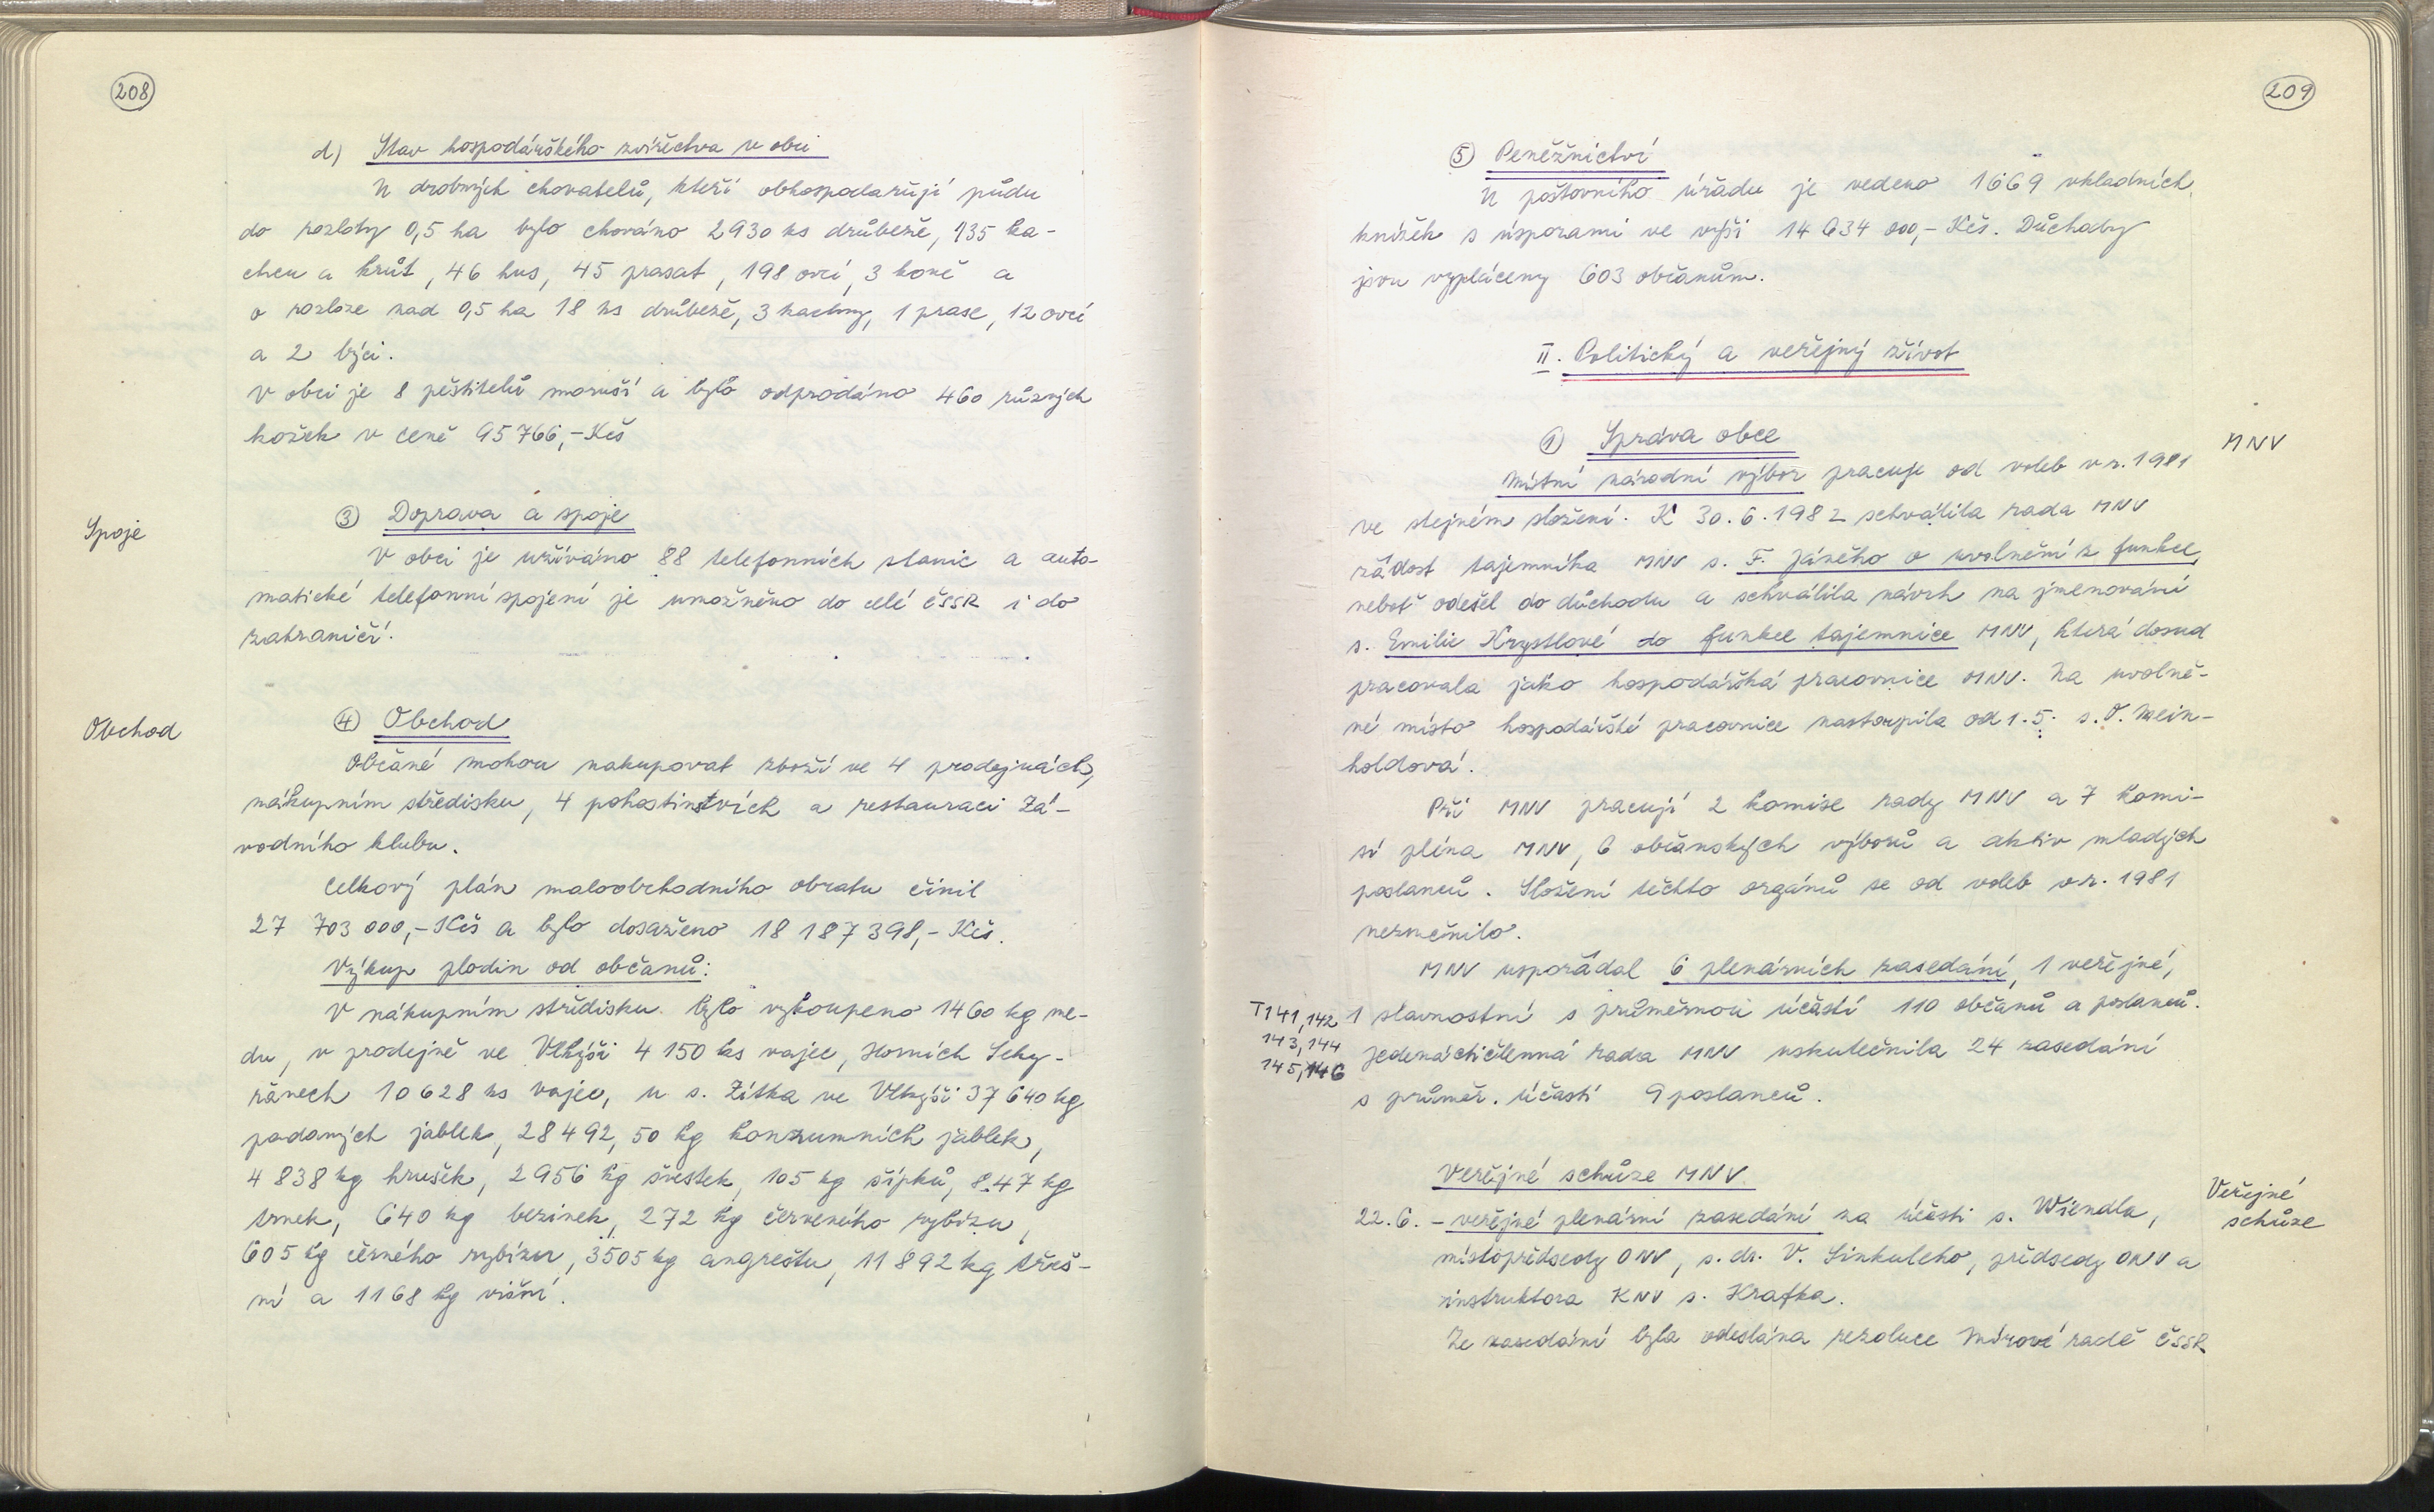 208
d) Stav hospodářského zvířectva v obci
U drobných chovatelů, kteří obhospodařují půdu
do rozlohy 0,5 ha bylo chováno 2930 ks drůbeže, 135 ka-
chen a krůt, 46 hus, 45 prasat, 198 ovcí, 3 koně a
o rozloze nad 0,5 ha 18 ks drůbeže, 3 kachny, 1 prase, 12 ovcí
a 2 býci.
V obci je 8 pěstitelů moruší a bylo odprodáno 460 různých
kožek v ceně 95 766,-Kčs
Spoje
③ Doprava a spoje
V obci je užíváno 88 telefonních stanic a auto-
matické telefonní spojení je umožněno do celé ČSSR i do
zahraničí.
Obchod
④ Obchod
Občané mohou nakupovat zboží ve 4 prodejnách,
nákupním středisku, 4 pohostinstvích a restauraci Zá-
vodního klubu.
Celkový plán maloobchodního obratu činil
27 703 000,-Kčs a bylo dosaženo 18 187 398,- Kčs.
Výkup plodin od občanů:
V nákupním středisku bylo vykoupeno 1460 kg me-
du, v prodejně ve Vlkýši 4 150 ks vajec, Horních Seky-
řanech 10 628 ks vajec, u s. Zítka ve Vlkýši 37 640 kg
padaných jablek, 28 492,50 kg konzumních jablek,
4 838 kg hrušek, 2 956 kg švestek, 105 kg šípků, 8.47 kg
trnek, 640 kg bezinek, 272 kg červeného rybízu,
605 kg černého rybízu, 3505 kg angreštu, 11 892 kg třeš-
ní a 1168 kg višní.
209
⑤ Peněžnictví
U poštovního úřadu je vedeno 1669 vkladních
knížek s úsporami ve výši 14 634 000,- Kčs. Důchody
jsou vypláceny 603 občanům.
II. Politický a veřejný život
① Správa obce
MNV
Místní národní výbor pracuje od voleb v r. 1981
ve stejném složení. K 30.6.1982 schválila rada MNV
žádost tajemníka MNV s. F. Jáného o uvolnění z funkce,
neboť odešel do důchodu a schválila návrh na jmenování
s. Emilie Krystlové do funkce tajemnice MNV, která dosud
pracovala jako hospodářská pracovnice MNV. Na uvolně-
né místo hospodářské pracovnice nastoupila od 1.5. s. V. Wein-
holdová.
Při MNV pracují 2 komise rady MNV a 7 komi-
sí pléna MNV, 6 občanských výborů a aktiv mladých
poslanců. Složení těchto orgánů se od voleb v r. 1981
nezměnilo.
MNV uspořádal 6 plenárních zasedání, 1 veřejné,
T141,142
143,144
145,146
1 slavnostní s průměrnou účastí 110 občanů a poslanců.
Jedenáctičlenná rada MNV uskutečnila 24 zasedání
s průměr. účastí 9 poslanců.
Veřejné schůze MNV
Veřejné
schůze
22.6. - veřejné plenární zasedání za účasti s. Wiendla,
místopředsedy ONV, s. dr. V. Sinkuleho, předsedy ONV a
instruktora KNV s. Krafka.
Ze zasedání byla odeslána rezoluce Mírové radě ČSSR